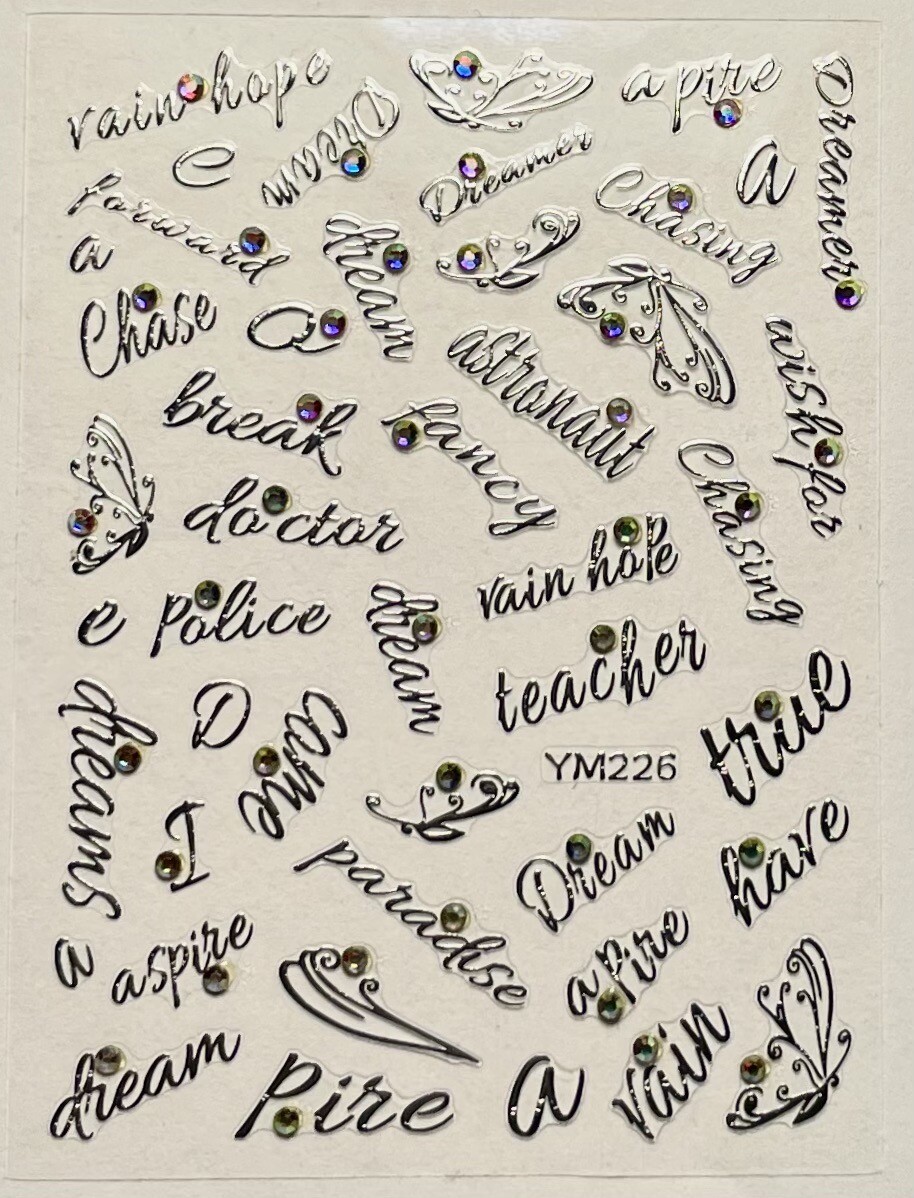 vain hope
a pire
Dreamer
Dream
Dreamer
C
a
forward
Chasing
a
dream
Chase
O
astronaut
wish for
break
fancy
Chasing
doctor
vain hope
e
police
dream
teacher
dreams
D
came
true
YM226
I
Dream
have
paradise
a
aspire
a pire
dream
pire
a
vain